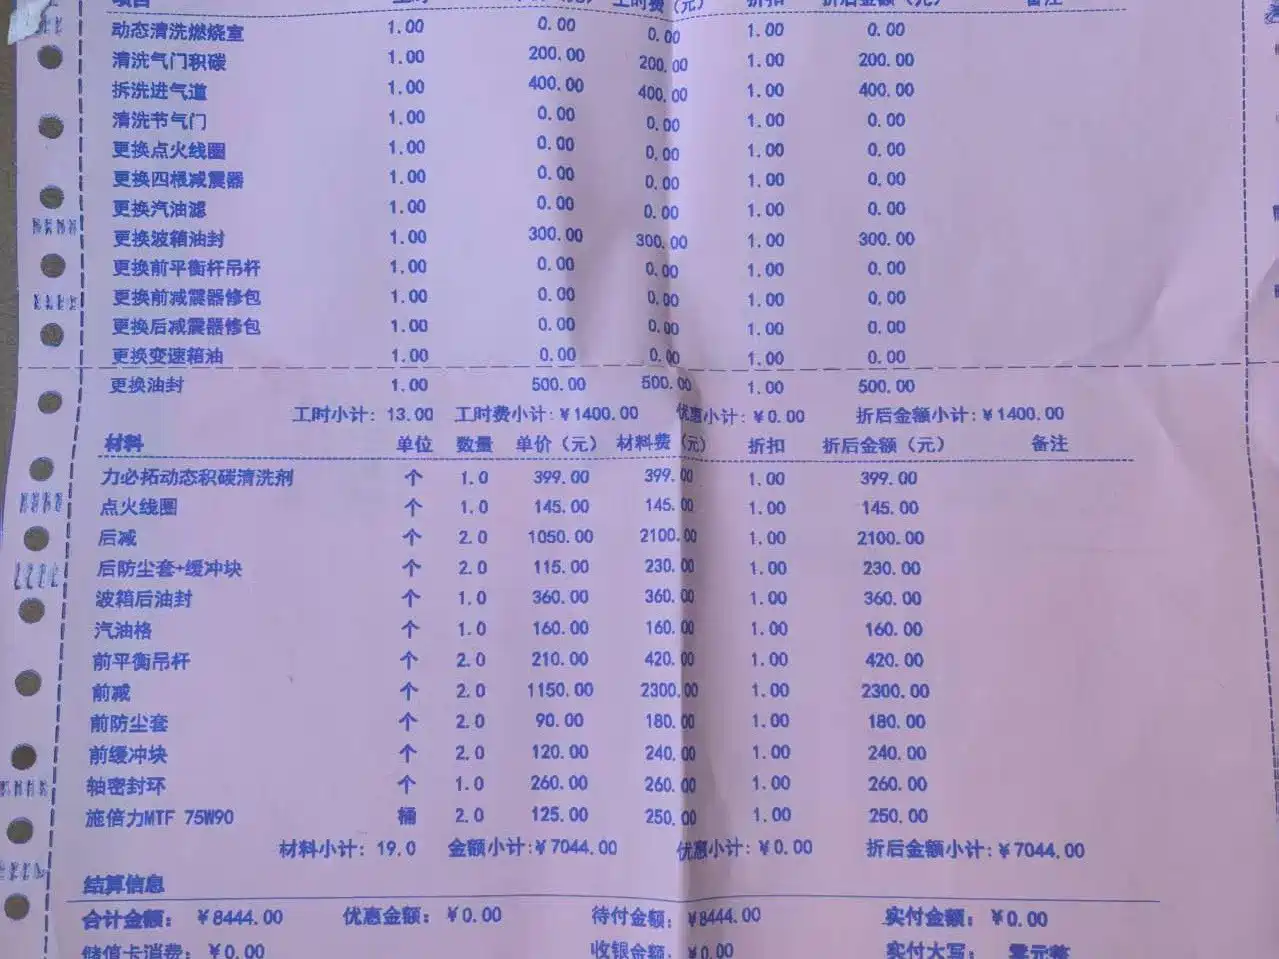 项目 工时 工时费(元) 折扣 折后金额(元) 备注
动态清洗燃烧室 1.00 0.00 0.00 1.00 0.00
清洗气门积碳 1.00 200.00 200.00 1.00 200.00
拆洗进气道 1.00 400.00 400.00 1.00 400.00
清洗节气门 1.00 0.00 0.00 1.00 0.00
更换点火线圈 1.00 0.00 0.00 1.00 0.00
更换四根减震器 1.00 0.00 0.00 1.00 0.00
更换汽油滤 1.00 0.00 0.00 1.00 0.00
更换波箱油封 1.00 300.00 300.00 1.00 300.00
更换前平衡杆吊杆 1.00 0.00 0.00 1.00 0.00
更换前减震器修包 1.00 0.00 0.00 1.00 0.00
更换后减震器修包 1.00 0.00 0.00 1.00 0.00
更换变速箱油 1.00 0.00 0.00 1.00 0.00
更换油封 1.00 500.00 500.00 1.00 500.00
工时小计: 13.00 工时费小计:¥1400.00 优惠小计:¥0.00 折后金额小计:¥1400.00
材料 单位 数量 单价(元) 材料费(元) 折扣 折后金额(元) 备注
力必拓动态积碳清洗剂 个 1.0 399.00 399.00 1.00 399.00
点火线圈 个 1.0 145.00 145.00 1.00 145.00
后减 个 2.0 1050.00 2100.00 1.00 2100.00
后防尘套+缓冲块 个 2.0 115.00 230.00 1.00 230.00
波箱后油封 个 1.0 360.00 360.00 1.00 360.00
汽油格 个 1.0 160.00 160.00 1.00 160.00
前平衡吊杆 个 2.0 210.00 420.00 1.00 420.00
前减 个 2.0 1150.00 2300.00 1.00 2300.00
前防尘套 个 2.0 90.00 180.00 1.00 180.00
前缓冲块 个 2.0 120.00 240.00 1.00 240.00
轴密封环 个 1.0 260.00 260.00 1.00 260.00
施倍力MTF 75W90 桶 2.0 125.00 250.00 1.00 250.00
材料小计: 19.0 金额小计:¥7044.00 优惠小计:¥0.00 折后金额小计:¥7044.00
结算信息
合计金额: ¥8444.00 优惠金额: ¥0.00 待付金额: ¥8444.00 实付金额: ¥0.00
储值卡消费: ¥0.00 收银金额: ¥0.00 实付大写: 零元整